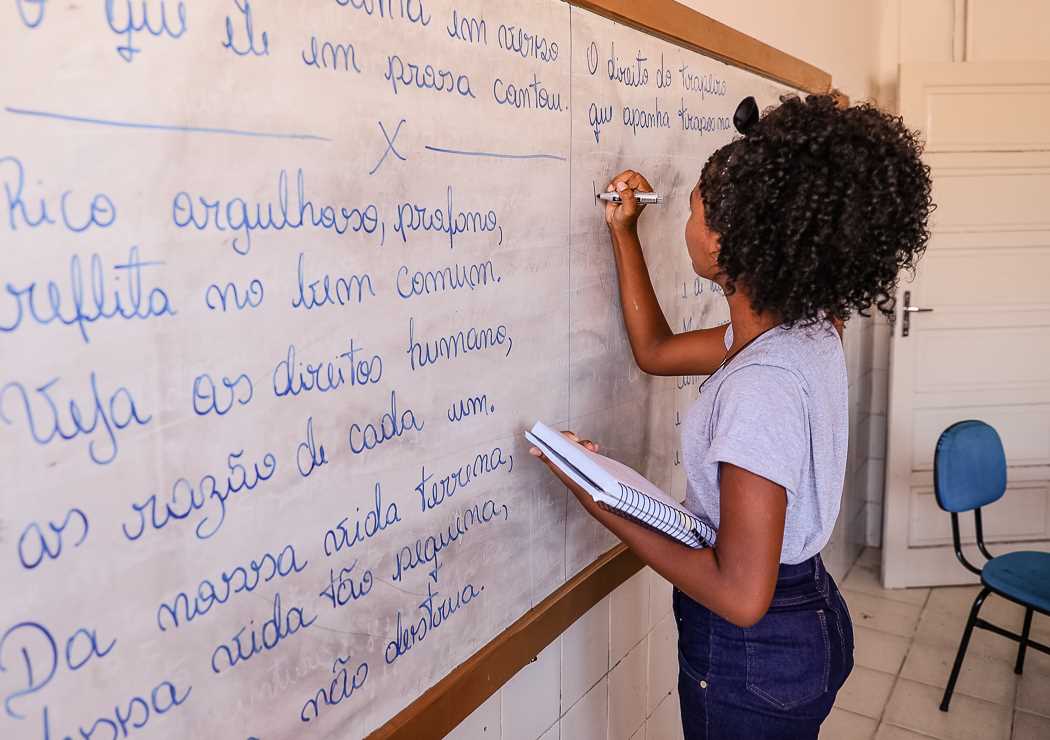 em verso
que ele em prosa cantou.
X
Rico argulhoso, profano,
reflita no bem comum.
Veja os direitos humano,
as razão de cada um.
Da nossa vida terrena,
dessa vida tão pequena,
não destrua.
O direito do trapileiro
que apanha trapos na